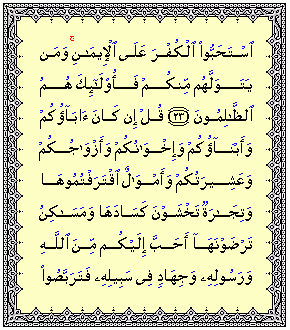 ٱسْتَحَبُّوا۟ ٱلْكُفْرَ عَلَى ٱلْإِيمَـٰنِ ۚ وَمَن
يَتَوَلَّهُم مِّنكُمْ فَأُو۟لَـٰٓئِكَ هُمُ
ٱلظَّـٰلِمُونَ ﴿٢٣﴾ قُلْ إِن كَانَ ءَابَآؤُكُمْ
وَأَبْنَآؤُكُمْ وَإِخْوَٰنُكُمْ وَأَزْوَٰجُكُمْ
وَعَشِيرَتُكُمْ وَأَمْوَٰلٌ ٱقْتَرَفْتُمُوهَا
وَتِجَـٰرَةٌ تَخْشَوْنَ كَسَادَهَا وَمَسَـٰكِنُ
تَرْضَوْنَهَآ أَحَبَّ إِلَيْكُم مِّنَ ٱللَّهِ
وَرَسُولِهِۦ وَجِهَادٍ فِى سَبِيلِهِۦ فَتَرَبَّصُوا۟